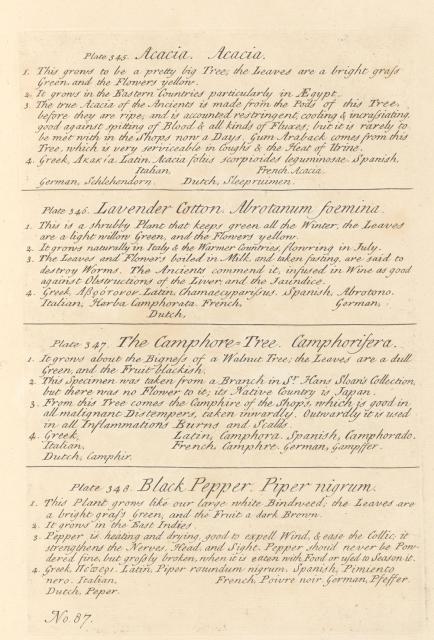 Plate 345. Acacia. Acacia.
1. This grows to be a pretty big Tree; the Leaves are a bright graſs
Green, and the Flowers yellow.
2. It grows in the Eastern Countries particularly in Ægypt.
3. The true Acacia of the Ancients is made from the Pods of this Tree,
before they are ripe; and is accounted restringent, cooling & incraſsating,
good against spitting of Blood & all kinds of Fluxes; but it is rarely to
be met with in the Shops now a Days. Gum Araback comes from this
Tree, which is very serviceable in Coughs & the Heat of Urine.
4. Greek, Ακακία. Latin, Acacia foliis scorpioides leguminosae. Spanish,
Italian, French, Acacia.
German, Schlehendorn. Dutch, Sleepruimen.
Plate 346. Lavender Cotton. Abrotanum foemina.
1. This is a shrubby Plant that keeps green all the Winter, the Leaves
are a light willow Green, and the Flowers yellow.
2. It grows naturally in Italy & the Warmer Countries, flowring in July.
3. The Leaves and Flowers boiled in Milk, and taken fasting, are said to
destroy Worms. The Ancients commend it, infused in Wine as good
against Obstructions of the Liver, and the Jaundice.
4. Greek, Latin, Chamaecypariſsus. Spanish, Abrotono.
Italian, Herba Camphorata. French, German,
Dutch,
Plate 347. The Camphore=Tree. Camphorifera.
1. It grows about the Bigneſs of a Walnut Tree; the Leaves are a dull
Green, and the Fruit blackish.
2. This Specimen was taken from a Branch in Sr. Hans Sloan's Collection,
but there was no Flower to it; its Native Country is Japan.
3. From this Tree comes the Camphire of the Shops, which is good in
all malignant Distempers, taken inwardly. Outwardly it is used
in all Inflammations Burns and Scalds.
4. Greek, Latin, Camphora. Spanish, Camphorado.
Italian, French, Camphre. German, Gampffer.
Dutch, Camphir.
Plate 348. Black Pepper. Piper nigrum.
1. This Plant grows like our large white Bindweed; the Leaves are
a bright graſs Green, and the Fruit a dark Brown.
2. It grows in the East Indies.
3. Pepper is heating and drying, good to expell Wind, & ease the Collic; it
strengthens the Nerves, Head, and Sight. Pepper shoud never be Pow-
dered fine, but groſsly broken, when it is eaten with Food or used to Season it.
4. Greek, Latin, Piper roundum nigrum. Spanish, Pimiento
nero. Italian, French, Poivre noir. German, Pfeffer.
Dutch, Peper.
No. 87.